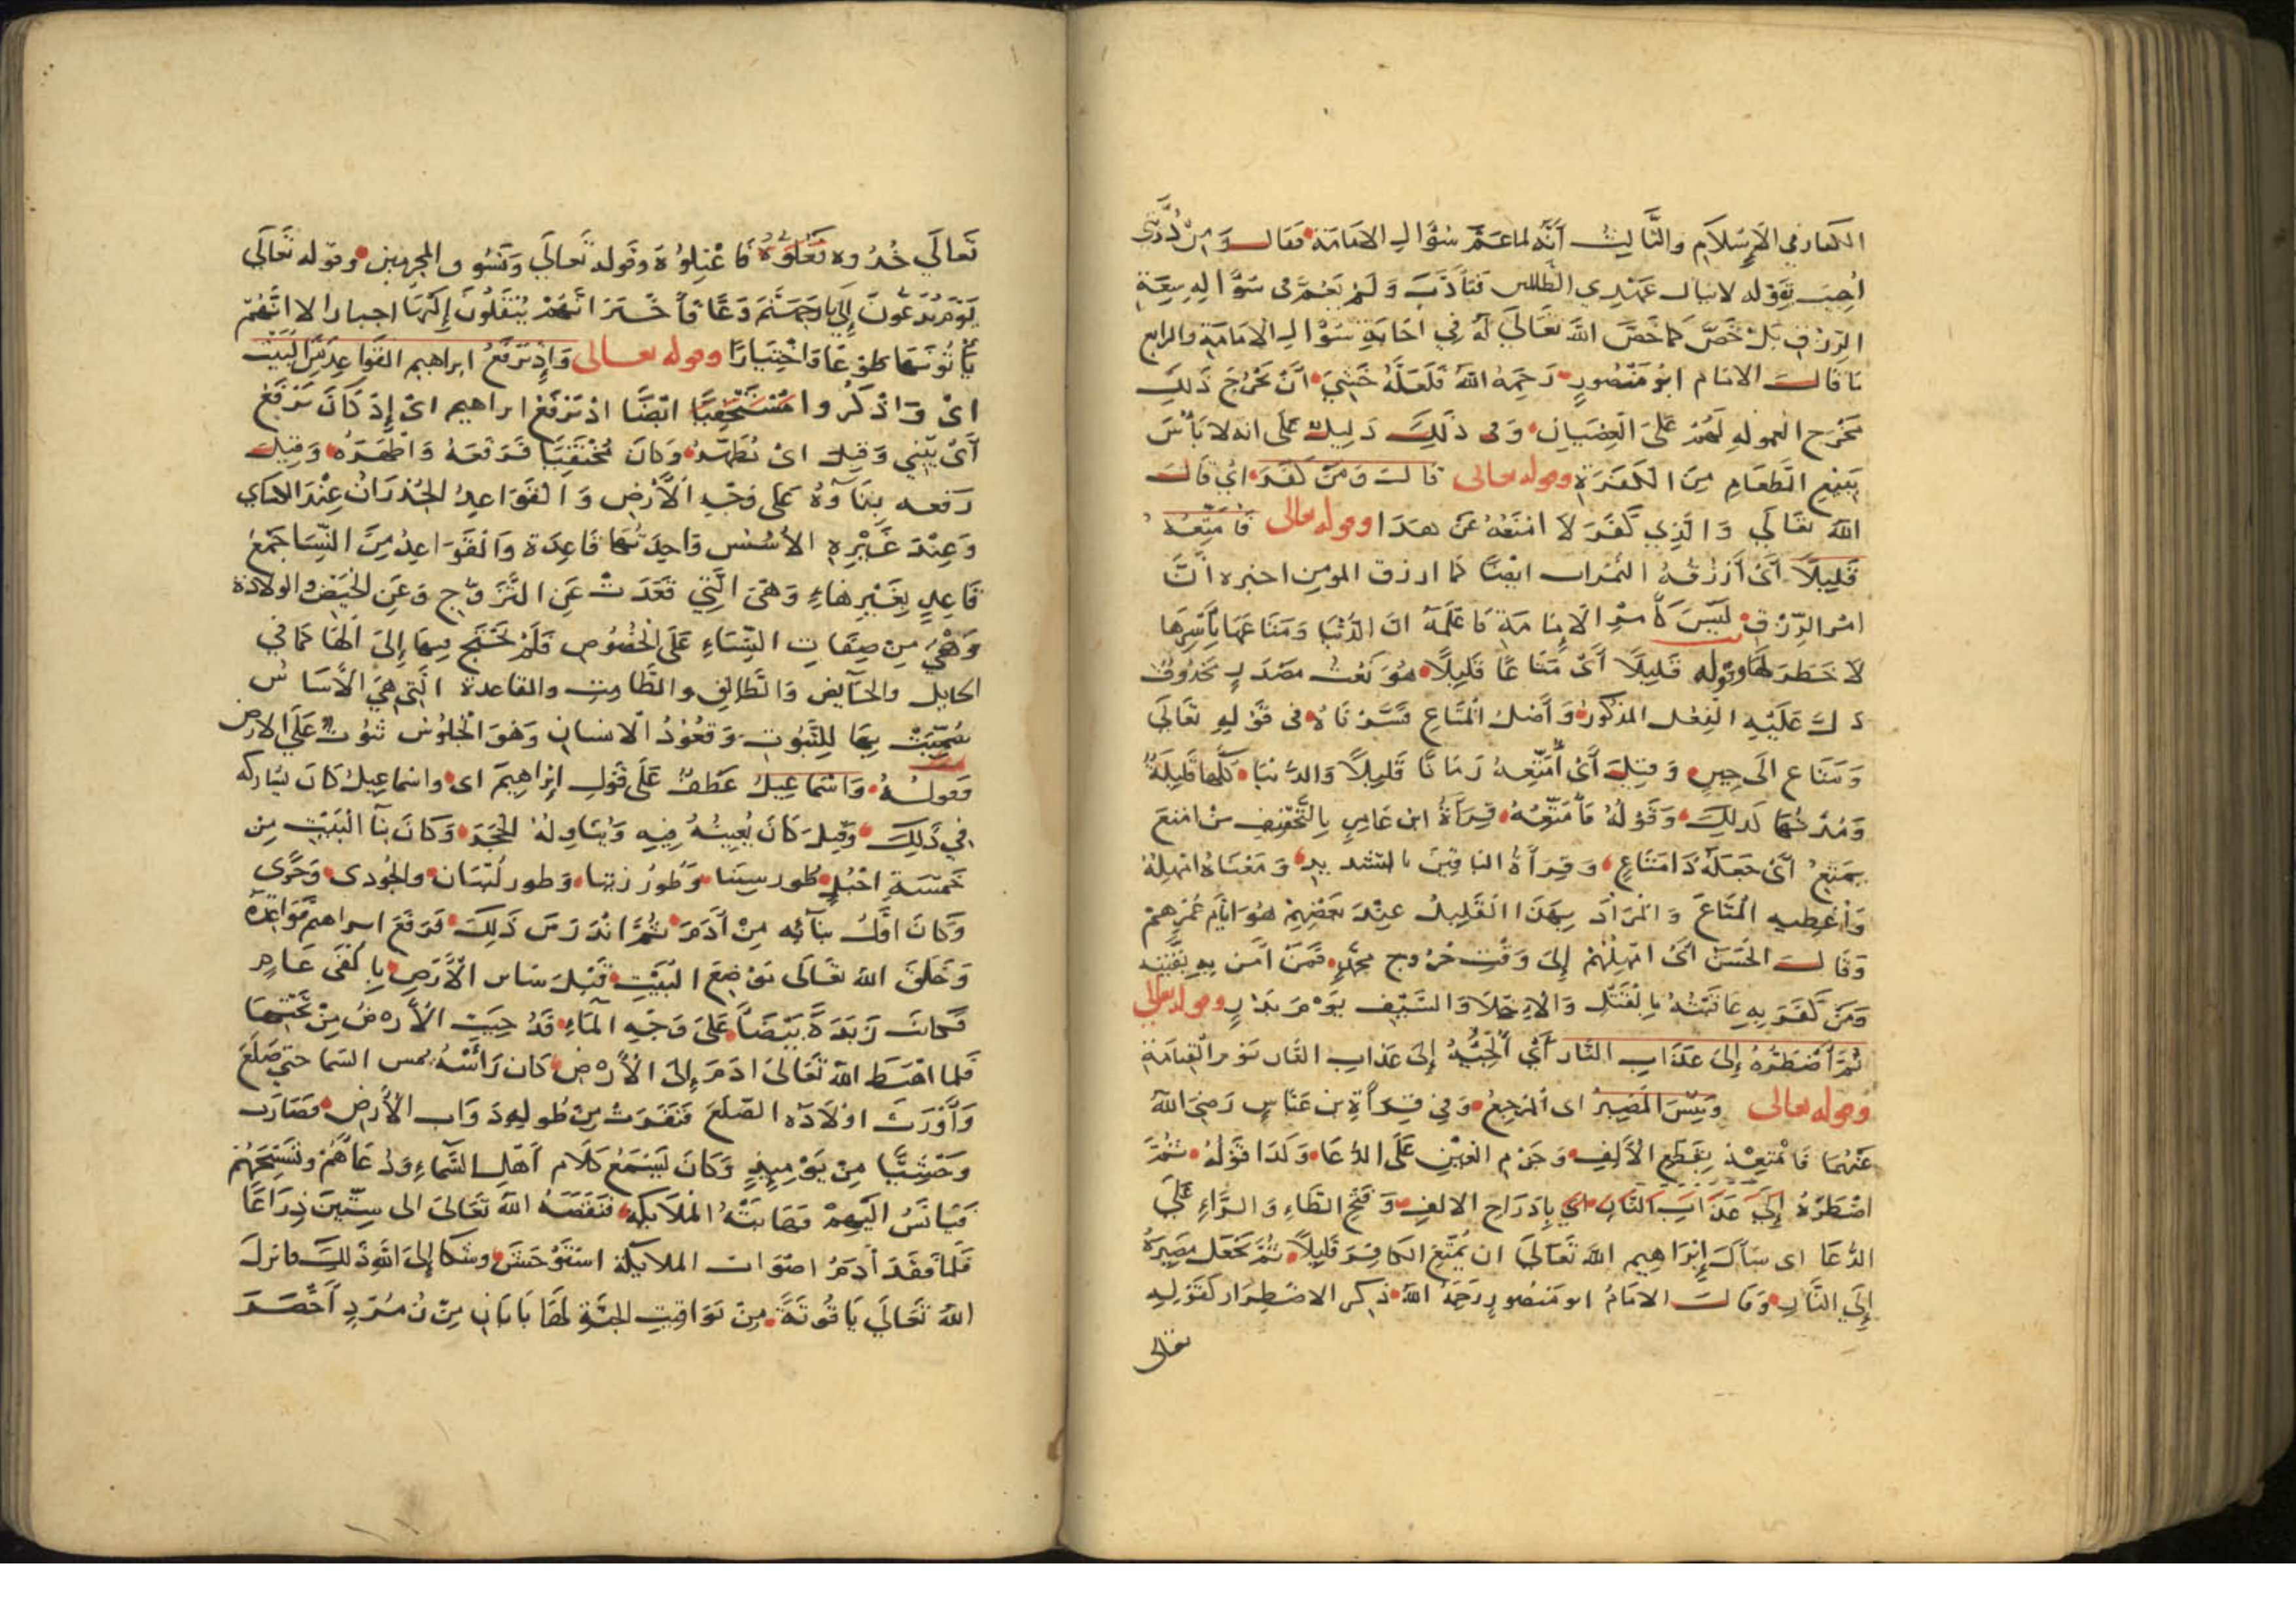 الكفار في الإسلام والثالث أنه لما عمّ سؤال الامامة فقال ومن ذريتي
اجيب بقوله لا ينال عهدي الظالمين فتأدب ولم يعم في سؤاله سعة
الرزق بل خص كما خص الله تعالى له في اجابة سؤال الامامة والرابع
ما قال الامام ابو منصور رحمه الله فلعله خشي ان يخرج ذلك
مخرج المعونة لهم على العصيان وفي ذلك دليل على انه لا بأس
ببيع الطعام من الكفرة وقوله تعالى قال ومن كفر اي قال
الله تعالى والذي كفر لا امنعه عن هذا وقوله تعالى فامتعه
قليلا أي أرزقه الثمرات ايضا كما ارزق المومن اخبره أن
امر الرزق ليس كأمر الإمامة فاعلمه ان الدنيا ومتاعها بأسرها
لا خطر لها وقوله قليلا أي متاعا قليلا هو نعت مصدر محذوف
دل عليه الفعل المذكور وأصل المتاع فسرناه في قوله تعالى
ومتاع الى حين وقيل أي أمتعه زمانا قليلا والدنيا كلها قليلة
ومدتها كذلك وقوله فأمتعه قراءة ابن عامر بالتخفيف من امتع
يمتع أي جعله ذا متاع وقراءة الباقين بالتشديد ومعناه امهله
وأعطيه المتاع والمراد بهذا القليل عند بعضهم هو ايام عمرهم
وقال الحسن أي امهلهم إلى وقت خروج محمد فمن آمن به بقيته
ومن كفر به عاقبته بالقتل والاجلاء والسيف يوم بدر وقوله تعالى
ثم أضطره إلى عذاب النار أي ألجئه إلى عذاب النار يوم القيامة
وقوله تعالى وبئس المصير اى المرجع وفي قراءة بن عباس رضي الله
عنهما فأمتعه بقطع الألف وجزم العين على الدعا وكذا قوله ثم
اضطره إلى عذاب النار اي بإدراج الالف وفتح الطاء والراء على
الدعا اى سأل إبراهيم الله تعالى ان يمتع الكافر قليلا ثم يجعل مصيره
إلى النار وقال الامام ابو منصور رحمه الله ذكر الاضطرار كقوله
تعالى
تعالى خذوه فغلوه فاعتلوه وقوله تعالى ونسوق المجرمين وقوله تعالى
يوم يدعون إلى نار جهنم دعا فأخبر انهم ينقلون إكراها اجبارا لا انهم
يأتونها طوعا واختيارا وقوله تعالى وإذ يرفع ابراهيم القواعد من البيت
اى واذكروا ايضا اذ يرفع ابراهيم اى إذ كان يرفع
أى يبني وقيل اى يظهر وكان مختفيا فرفعه واظهره وقيل
رفعه بناؤه على وجه الأرض والقواعد الجدران عند الكساي
وعند غيره الأسس واحدتها قاعدة والقواعد من النسا جمع
قاعد بغير هاء وهي التي قعدت عن التزوج وعن الحيض والولادة
وهي من صفات النساء على الخصوص فلم تحتج فيها إلى الها كما في
الحايل والحايض والطالق والطامث والقاعدة التي هي الأساس
سميت بها للثبوت وقعود الانسان وهو الجلوس ثبوت على الارض
وقوله واسماعيل عطف على قول إبراهيم اى واسماعيل كان يشاركه
في ذلك وقيل كان يعينه فيه ويناوله الحجر وكان بنآ البيت من
خمسة اجبل طور سينا وطور زيتا وطور لبنان والجودى وحرى
وكان اول بنائه من أدم ثم اندرس ذلك فرفع ابراهيم قواعده
وخلق الله تعالى موضع البيت قبل سائر الأرض بألفى عام
فكانت زبدة بيضا على وجه الماء قد حييت الأرض من تحتها
فلما اهبط الله تعالى ادم إلى الأرض كان رأسه يمس السما حتى صلع
وأورث اولاده الصلع فنفرت من طوله دواب الأرض فصارت
وحشيا من يوميذ وكان يسمع كلام أهل السماء ودعاهم وتسبيحهم
فيانس اليهم فهابته الملايكة فنقصه الله تعالى الى ستين ذراعا
فلما فقد أدم اصوات الملايكة استوحش وشكا إلى الله ذلك فانزل
الله تعالى ياقوتة من يواقيت الجنة لها بابان من زمرد أخضر